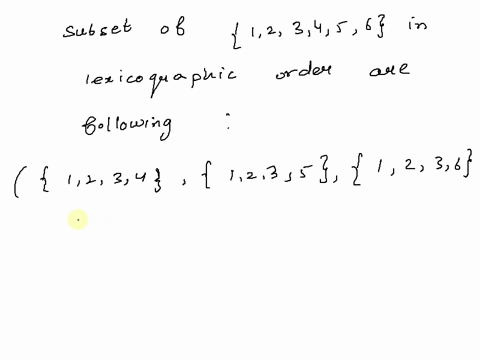 subset of {1,2,3,4,5,6} in
lexicographic order are
following :
({1,2,3,4}, {1,2,3,5}, {1,2,3,6}